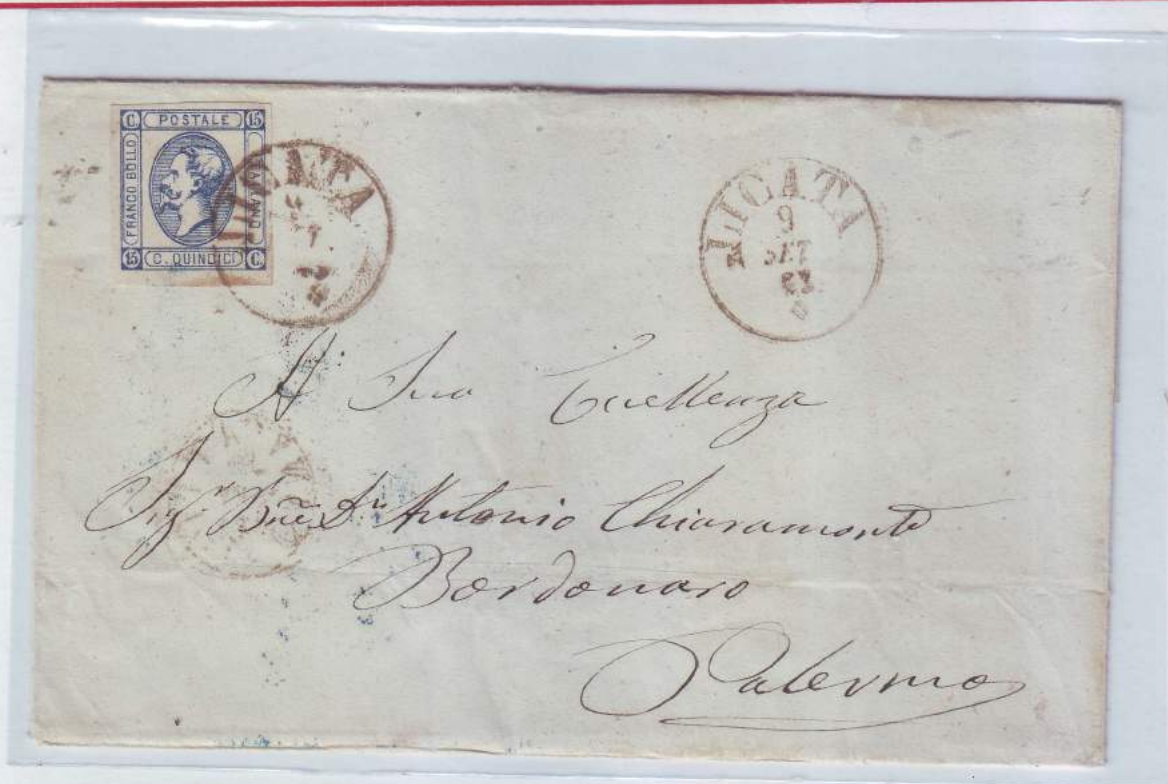 C. POSTALE 15
FRANCO BOLLO
ITALIANO
15 C. QUINDICI C.
LICATA
LICATA
9
SET
63
A Sua Eccellenza
Sigr. Bne. Dn. Antonio Chiaramonte
Bordonaro
Palermo